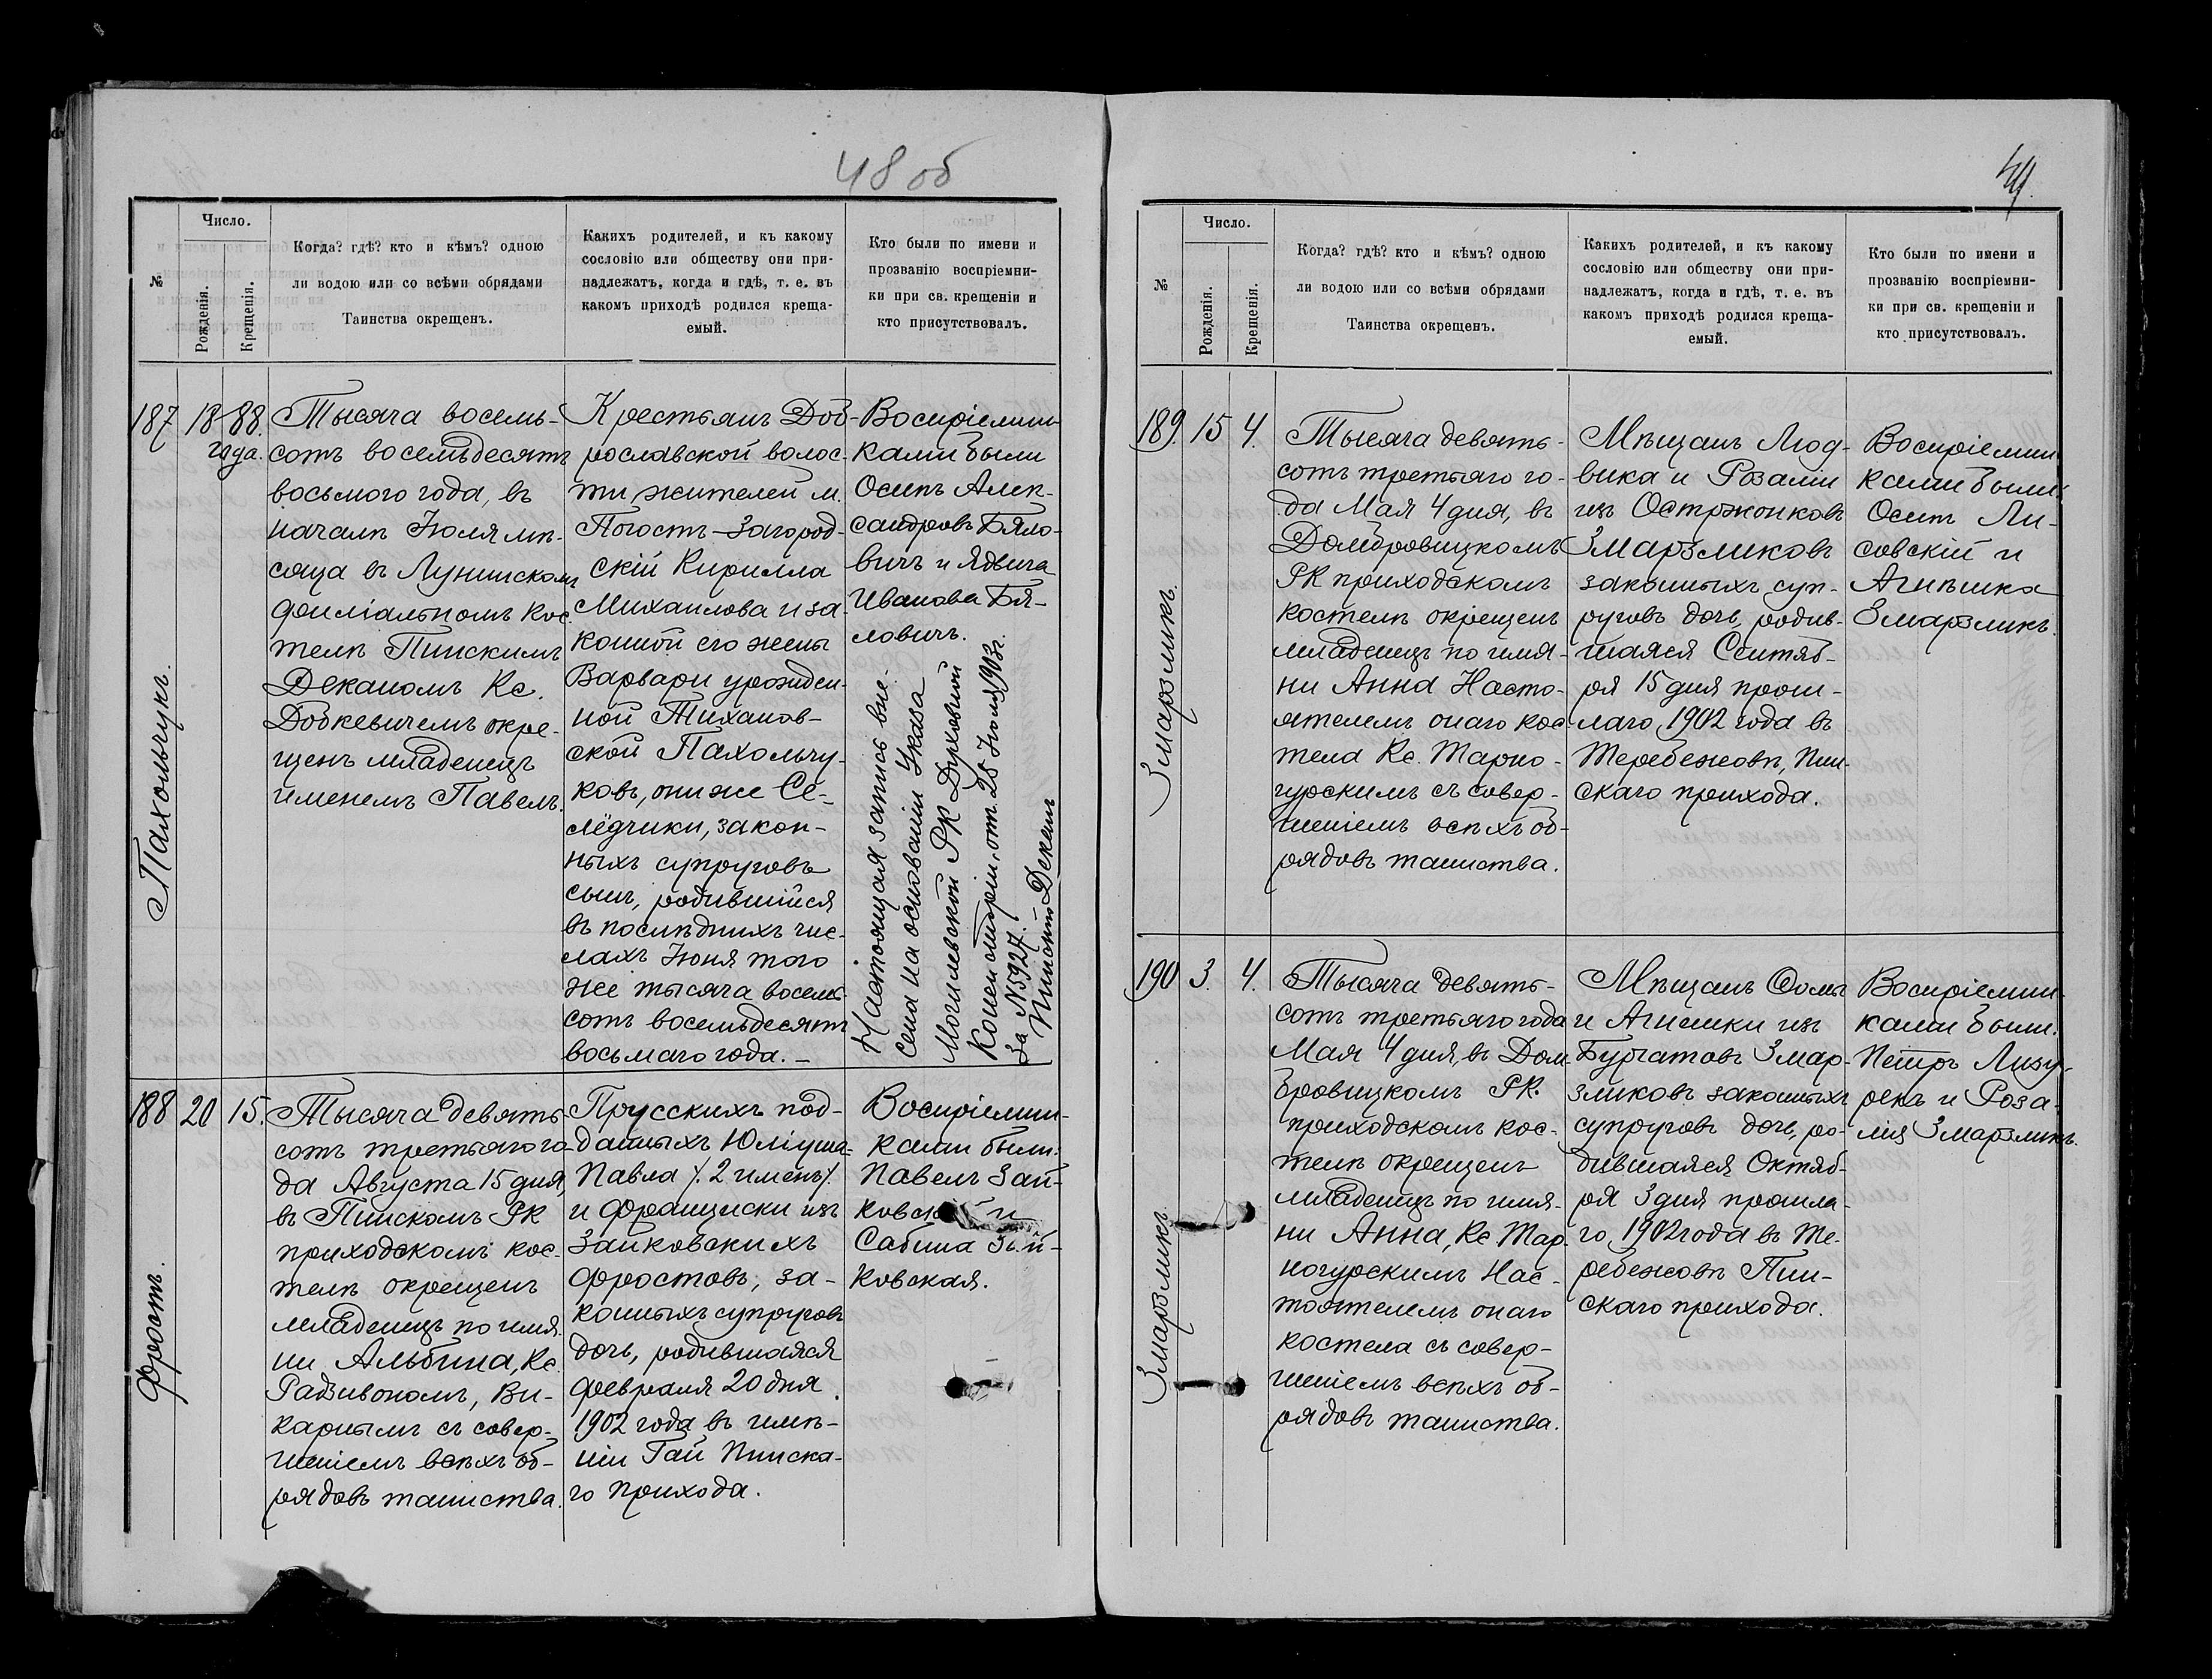 48 об
№
Число.
Рожденія.
Крещенія.
Когда? гдѣ? кто и кѣмъ? одною
ли водою или со всѣми обрядами
Таинства окрещенъ.
Какихъ родителей, и къ какому
сословію или обществу они при-
надлежатъ, когда и гдѣ, т. е. въ
какомъ приходѣ родился креща-
емый.
Кто были по имени и
прозванію воспріемни-
ки при св. крещеніи и
кто присутствовалъ.
187
1888.
года.
Пахольчукъ.
Тысяча восемь-
сотъ восемьдесятъ
восьмого года, въ
началѣ Іюля мѣ-
сяца въ Лунинскомъ
филіальномъ кос-
телѣ Пинскимъ
Деканомъ Кс.
Бобкевичемъ окре-
щенъ младенецъ
именемъ Павелъ.
Крестьянъ Доб-
рославской волос-
ти, жителей м.
Погостъ-Загород-
скій Кирилла
Михайлова и за-
конной его жены
Варвары урожден-
ной Тиханов-
ской Пахольчу-
ковъ, они же Се-
лёдчики, закон-
ныхъ супруговъ
сынъ, родившійся
въ послѣднихъ чис-
лахъ Іюня того
же тысяча восемь-
сотъ восемьдесятъ
восьмаго года. –
Воспріемни-
ками были
Осипъ Алек-
сандровъ Бяло-
вичъ и Ядвига
Иванова Бя-
ловичъ.
Настоящая запись вне-
сена на основаніи Указа
Могилевской РК Духовной
Консисторіи, отъ 25 Іюня 1903г.
за №5927.
Пинскій Деканъ
188
20
15.
Фростъ.
Тысяча девять-
сотъ третьяго го-
да Августа 15 дня,
въ Пинскомъ РК
приходскомъ кос-
телѣ окрещенъ
младенецъ по имя-
ни Альбина, Кс.
Радзивономъ, Ви-
карнымъ съ совер-
шеніемъ всѣхъ об-
рядовъ таинства.
Прусскихъ под-
данныхъ Юліуша-
Павла /. 2 именъ /.
и Францишки изъ
Зайковскихъ
Фростовъ, за-
конныхъ супруговъ
дочь, родившаяся
февраля 20 дня
1902 года въ имѣ-
ніи Гай Пинска-
го прихода.
Воспріемни-
ками были:
Павелъ Зай-
ковскій и
Сабина Зай-
ковская.
49.
№
Число.
Рожденія.
Крещенія.
Когда? гдѣ? кто и кѣмъ? одною
ли водою или со всѣми обрядами
Таинства окрещенъ.
Какихъ родителей, и къ какому
сословію или обществу они при-
надлежатъ, когда и гдѣ, т. е. въ
какомъ приходѣ родился креща-
емый.
Кто были по имени и
прозванію воспріемни-
ки при св. крещеніи и
кто присутствовалъ.
189.
15
4.
Змарзликъ.
Тысяча девять-
сотъ третьяго го-
да Мая 4 дня, въ
Домбровицкомъ
РК приходскомъ
костелѣ окрещенъ
младенецъ по имя-
ни Анна Насто-
ятелемъ онаго кос-
тела Кс. Тарно-
гурскимъ съ совер-
шеніемъ всѣхъ об-
рядовъ таинства.
Мѣщанъ Люд-
вика и Розаліи
изъ Остржонковъ
Змарзликовъ
законныхъ суп-
руговъ дочь, родив-
шаяся Сентяб-
ря 15 дня прош-
лаго, 1902 года въ
Теребежовѣ, Пин-
скаго прихода.
Воспріемни-
ками были:
Осипъ Ли-
совскій и
Агнѣшка
Змарзликъ.
190
3.
4.
Змарзликъ
Тысяча девять-
сотъ третьяго года
Мая 4 дня, въ Дом-
бровицкомъ РК.
приходскомъ кос-
телѣ окрещенъ
младенецъ по имя-
ни Анна, Кс Тар-
ногурскимъ Нас-
тоятелемъ онаго
костела съ совер-
шеніемъ всѣхъ об-
рядовъ таинства.
Мѣщанъ Ѳомы
и Агнешки изъ
Бургатовъ Змар-
зликовъ законныхъ
супруговъ дочь, ро-
дившаяся Октяб-
ря 3 дня прошла-
го, 1902 года въ Те-
ребежовѣ Пин-
скаго прихода.
Воспріемни-
ками были:
Петръ Мазу-
рекъ и Роза-
лія Змарзликъ.